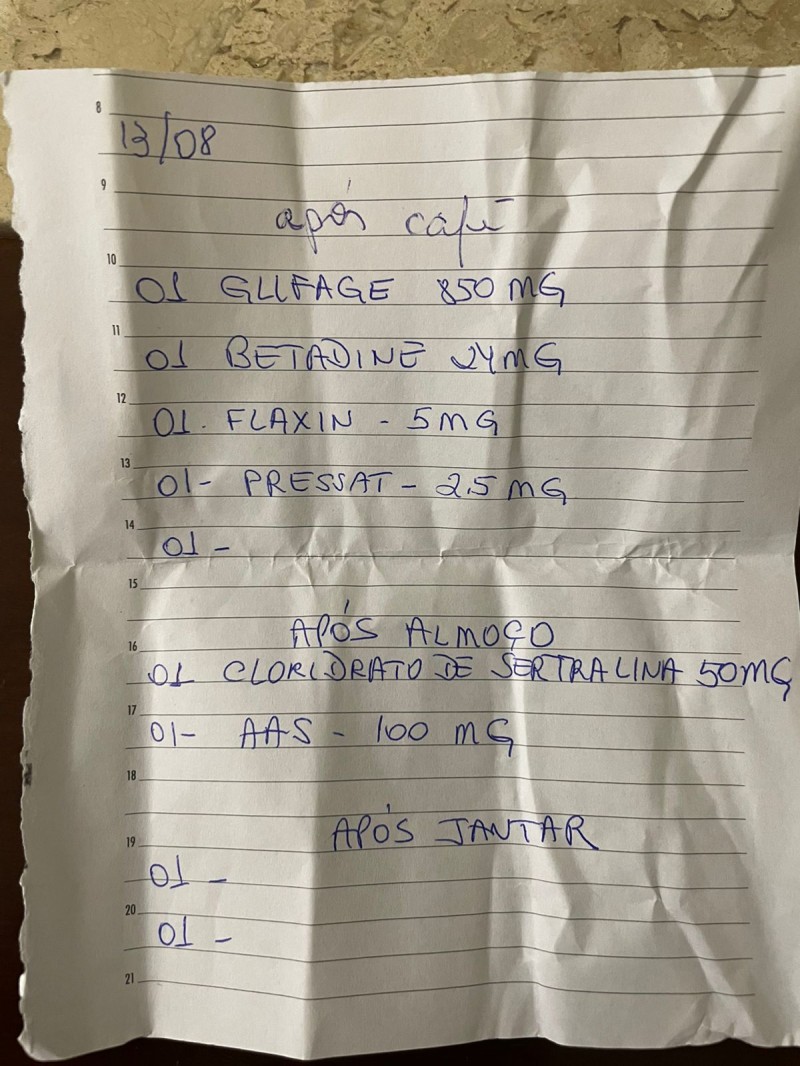 8
13/08
9
após café
10
01 GLIFAGE 850 MG
11
01 BETADINE 24 MG
12
01. FLAXIN - 5 MG
13
01- PRESSAT - 2,5 MG
14
01 -
15
APÓS ALMOÇO
16
01 CLORIDRATO DE SERTRALINA 50 MG
17
01- AAS - 100 MG
18
APÓS JANTAR
19
01 -
20
01 -
21